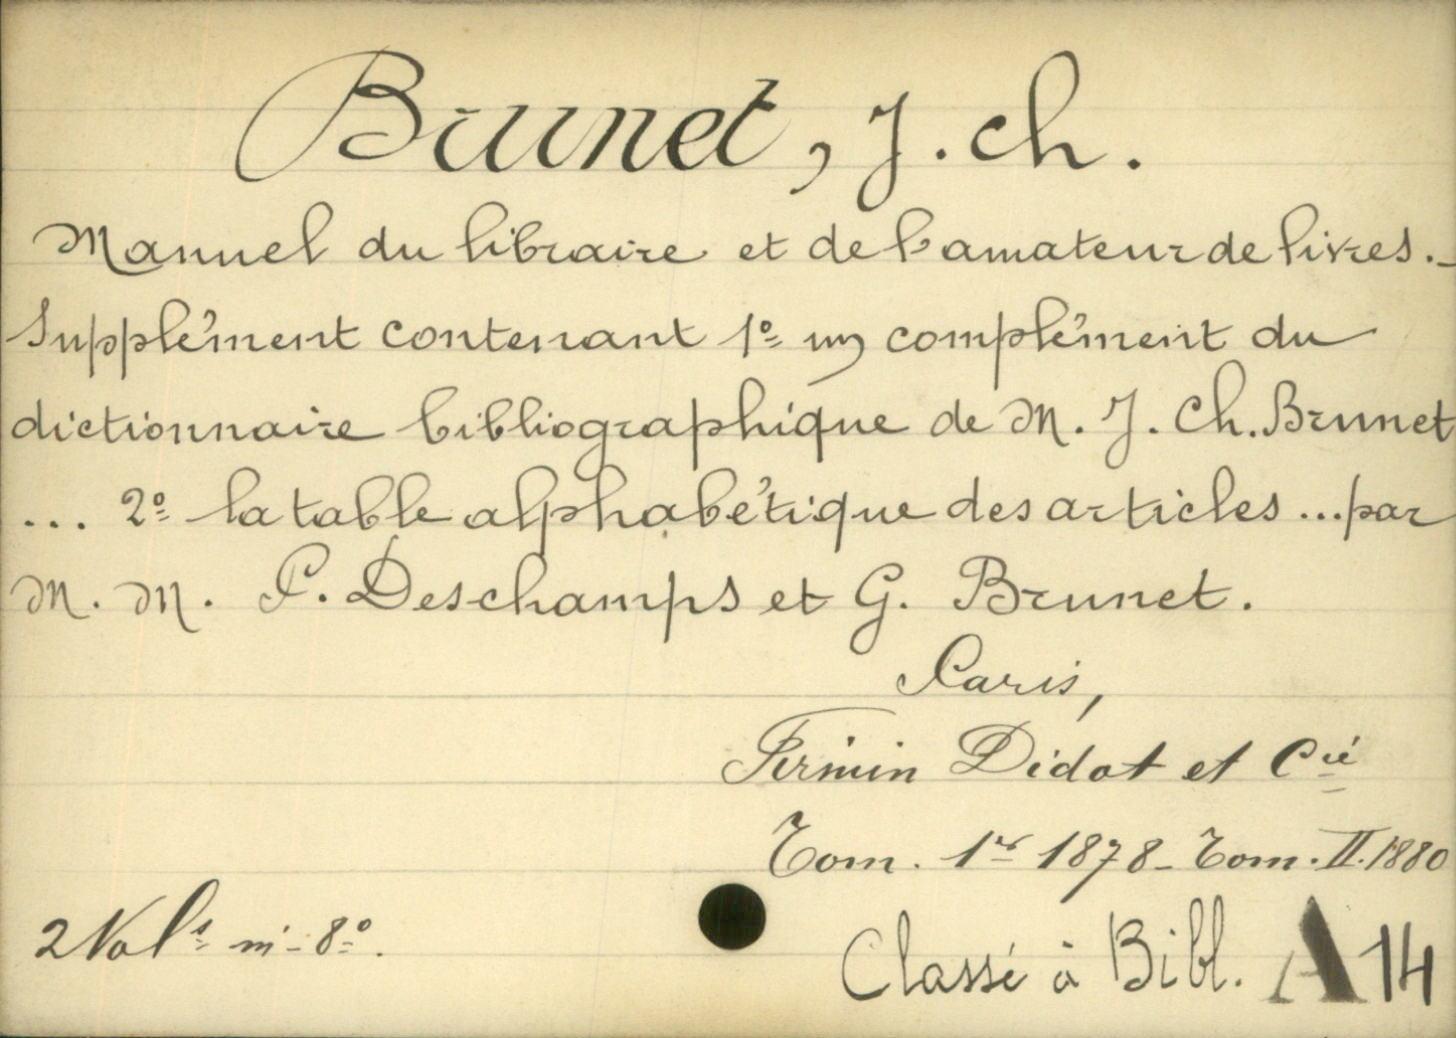 Brunet, J. ch.
Manuel du libraire et de l'amateur de livres._
Supplément contenant 1º un complément du
dictionnaire bibliographique de M. J. Ch. Brunet
... 2º la table alphabétique des articles ... par
M. M. P. Deschamps et G. Brunet.
Paris,
Firmin Didot et Cie
Tom. 1er 1878 - Tom. II. 1880
2 Vols in-8º.
Classé à Bibl. A 14